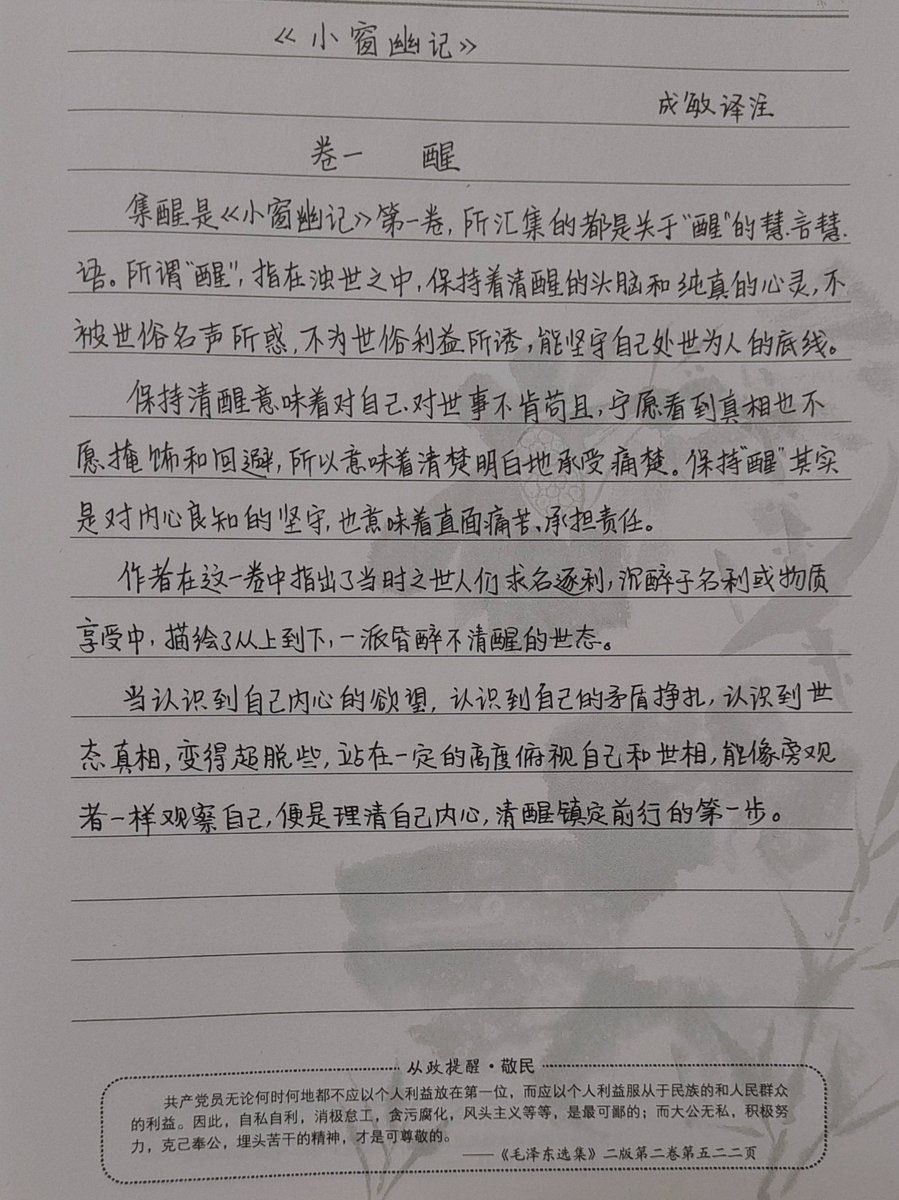 《小窗幽记》
成敏译注
卷一 醒
集醒是《小窗幽记》第一卷,所汇集的都是关于"醒"的慧言慧
语。所谓"醒",指在浊世之中,保持着清醒的头脑和纯真的心灵,不
被世俗名声所惑,不为世俗利益所诱,能坚守自己处世为人的底线。
保持清醒意味着对自己、对世事不肯苟且,宁愿看到真相也不
愿掩饰和回避,所以意味着清楚明白地承受痛楚。保持"醒"其实
是对内心良知的坚守,也意味着直面痛苦、承担责任。
作者在这一卷中指出了当时之世人们求名逐利,沉醉于名利或物质
享受中,描绘了从上到下,一派昏醉不清醒的世态。
当认识到自己内心的欲望,认识到自己的矛盾挣扎,认识到世
态真相,变得超脱些,站在一定的高度俯视自己和世相,能像旁观
者一样观察自己,便是理清自己内心,清醒镇定前行的第一步。
从政提醒·敬民
共产党员无论何时何地都不应以个人利益放在第一位,而应以个人利益服从于民族的和人民群众
的利益。因此,自私自利,消极怠工,贪污腐化,风头主义等等,是最可鄙的;而大公无私,积极努
力,克己奉公,埋头苦干的精神,才是可尊敬的。
——《毛泽东选集》二版第二卷第五二二页